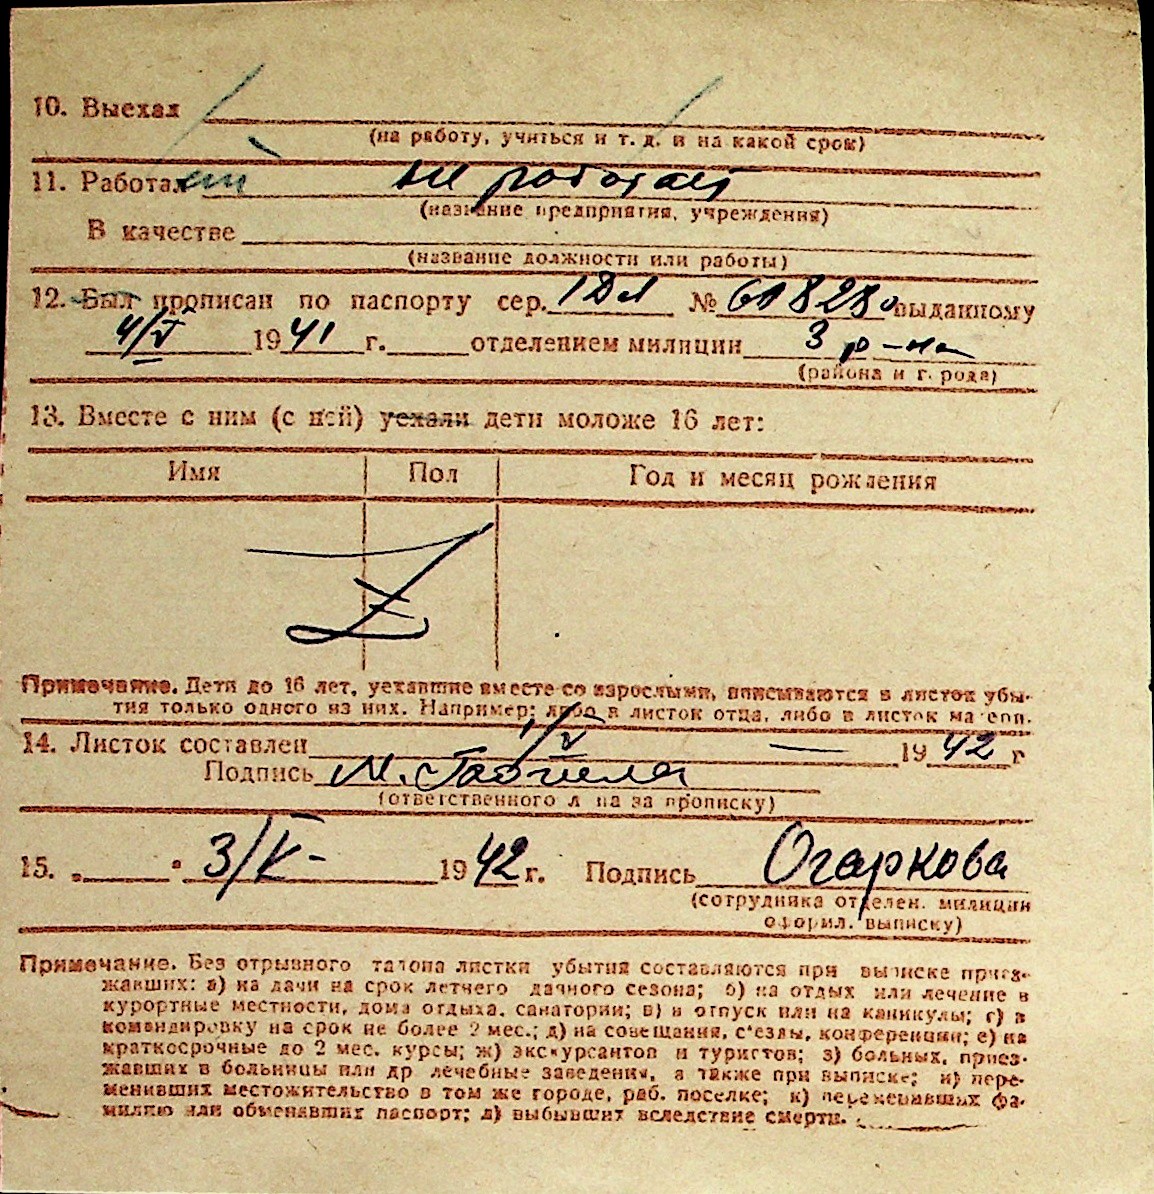 10. Выехал
(на работу, учиться и т. д. и на какой срок)
11. Работал не работает
(название предприятия, учреждения)
В качестве
(название должности или работы)
12. Был прописан по паспорту сер. № выданному
4/V 1941 г. отделением милиции 3 р-на
(района и города)
13. Вместе с ним (с ней) уехали дети моложе 16 лет:
Имя Пол Год и месяц рождения
Примечание. Дети до 16 лет, уехавшие вместе со взрослыми, вписываются в листок убы-
тия только одного из них. Например: либо в листок отца, либо в листок матери.
14. Листок составлен 1/V 1942 г
Подпись М.
(ответственного лица за прописку)
15. „ " 3/V - 1942 г. Подпись Огаркова
(сотрудника отделен. милиции
оформил. выписку)
Примечание. Без отрывного талона листки убытия составляются при выписке приез-
жавших: а) на дачи на срок летнего дачного сезона; б) на отдых или лечение в
курортные местности, дома отдыха, санатории; в) в отпуск или на каникулы; г) в
командировку на срок не более 2 мес.; д) на совещания, с'езды, конференции; е) на
краткосрочные до 2 мес. курсы; ж) экскурсантов и туристов; з) больных, приез-
жавших в больницы или др лечебные заведения, а также при выписке; и) пере-
менивших местожительство в том же городе, раб. поселке; к) переменивших фа-
милию или обменявших паспорт; л) выбывших вследствие смерти.